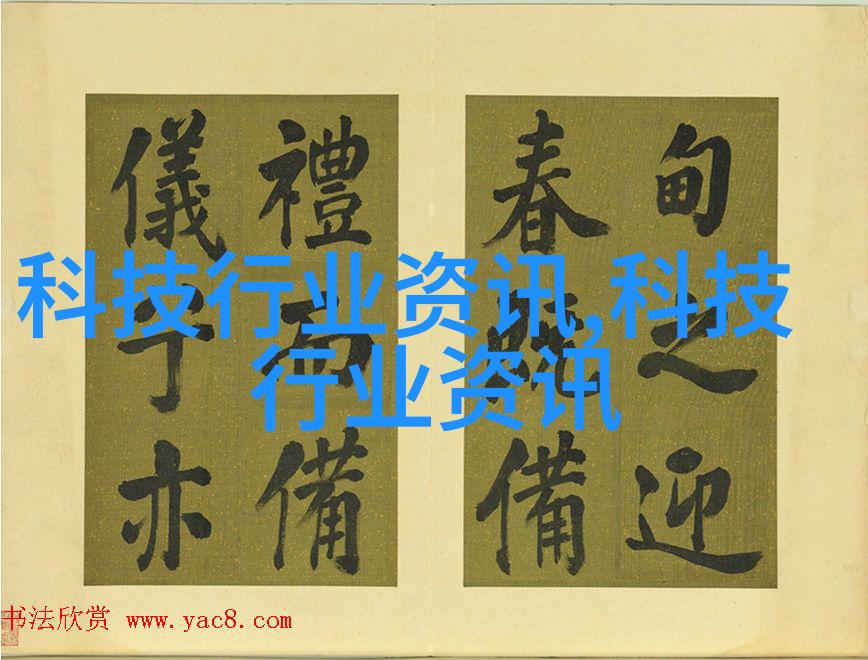 甸之迎
春既備
禮而備
儀于亦
科技行业资讯,科技
行业资讯
书法欣赏 www.yac8.com